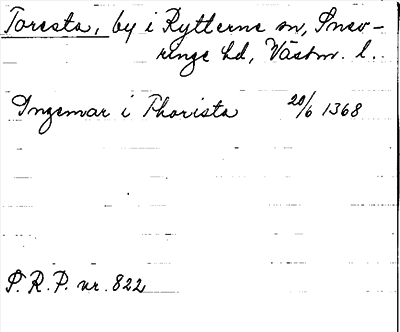 Toresta, by i Rytterne sn, Snev-
ringe hd, Västm. l..
Ingemar i Thorista 20/6 1368
S.R.P. nr. 822